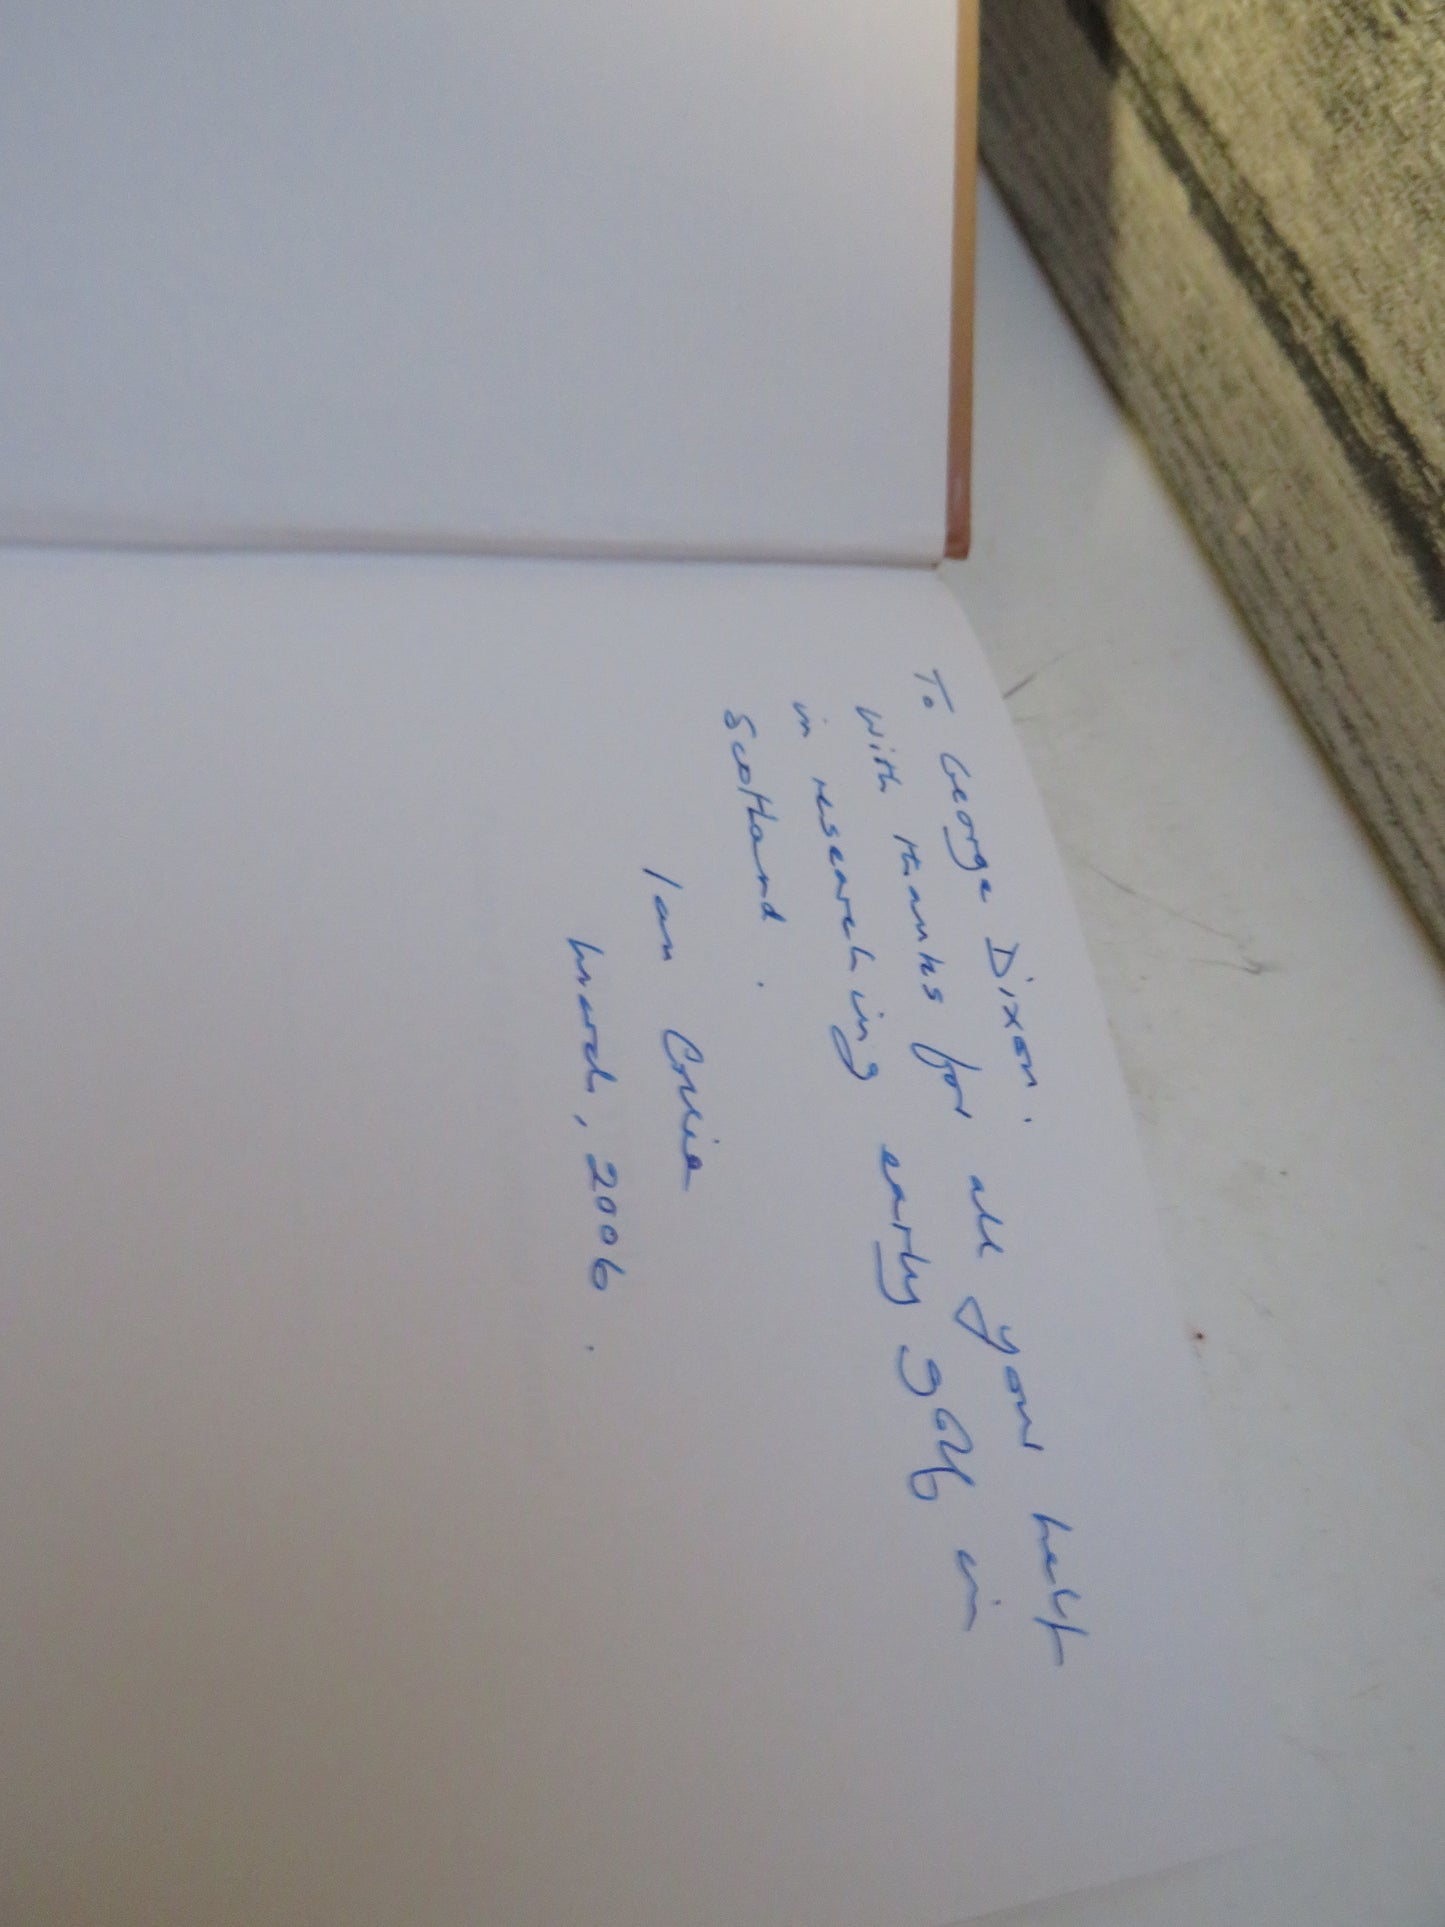 To George Dixon.
With thanks for all your help
in researching early golf in
Scotland.
Ian
March, 2006.